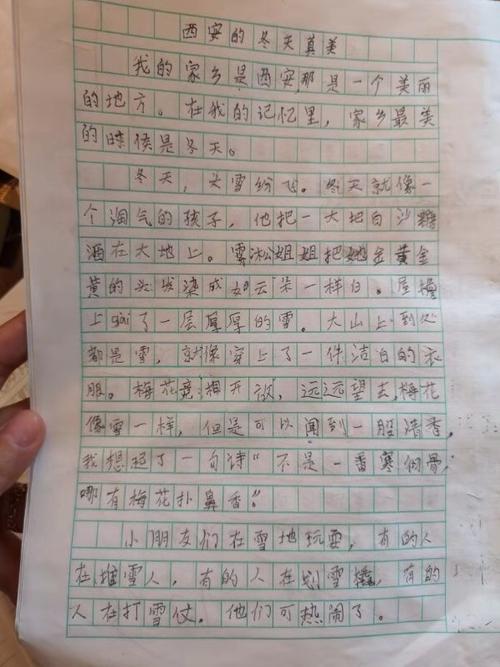 西安的冬天真美
我的家乡是西安,那是一个美丽
的地方。在我的记忆里,家乡最美
的时候是冬天。
冬天,大雪纷飞。冬天就像一
个淘气的孩子,他把一大把白沙糖
洒在大地上。雾松姐姐把她金黄金
黄的头发染成如云朵一样白。屋檐
上gài了一层厚厚的雪。大山上到处
都是雪,就像穿上了一件洁白的衣
服。梅花竞相开放,远远望去,梅花
像雪一样,但是可以闻到一股清香,
我想起了一句诗“不是一番寒彻骨,
哪有梅花扑鼻香”。
小朋友们在雪地玩耍,有的人
在堆雪人,有的人在划雪橇,有的
人在打雪仗。他们可热闹了。